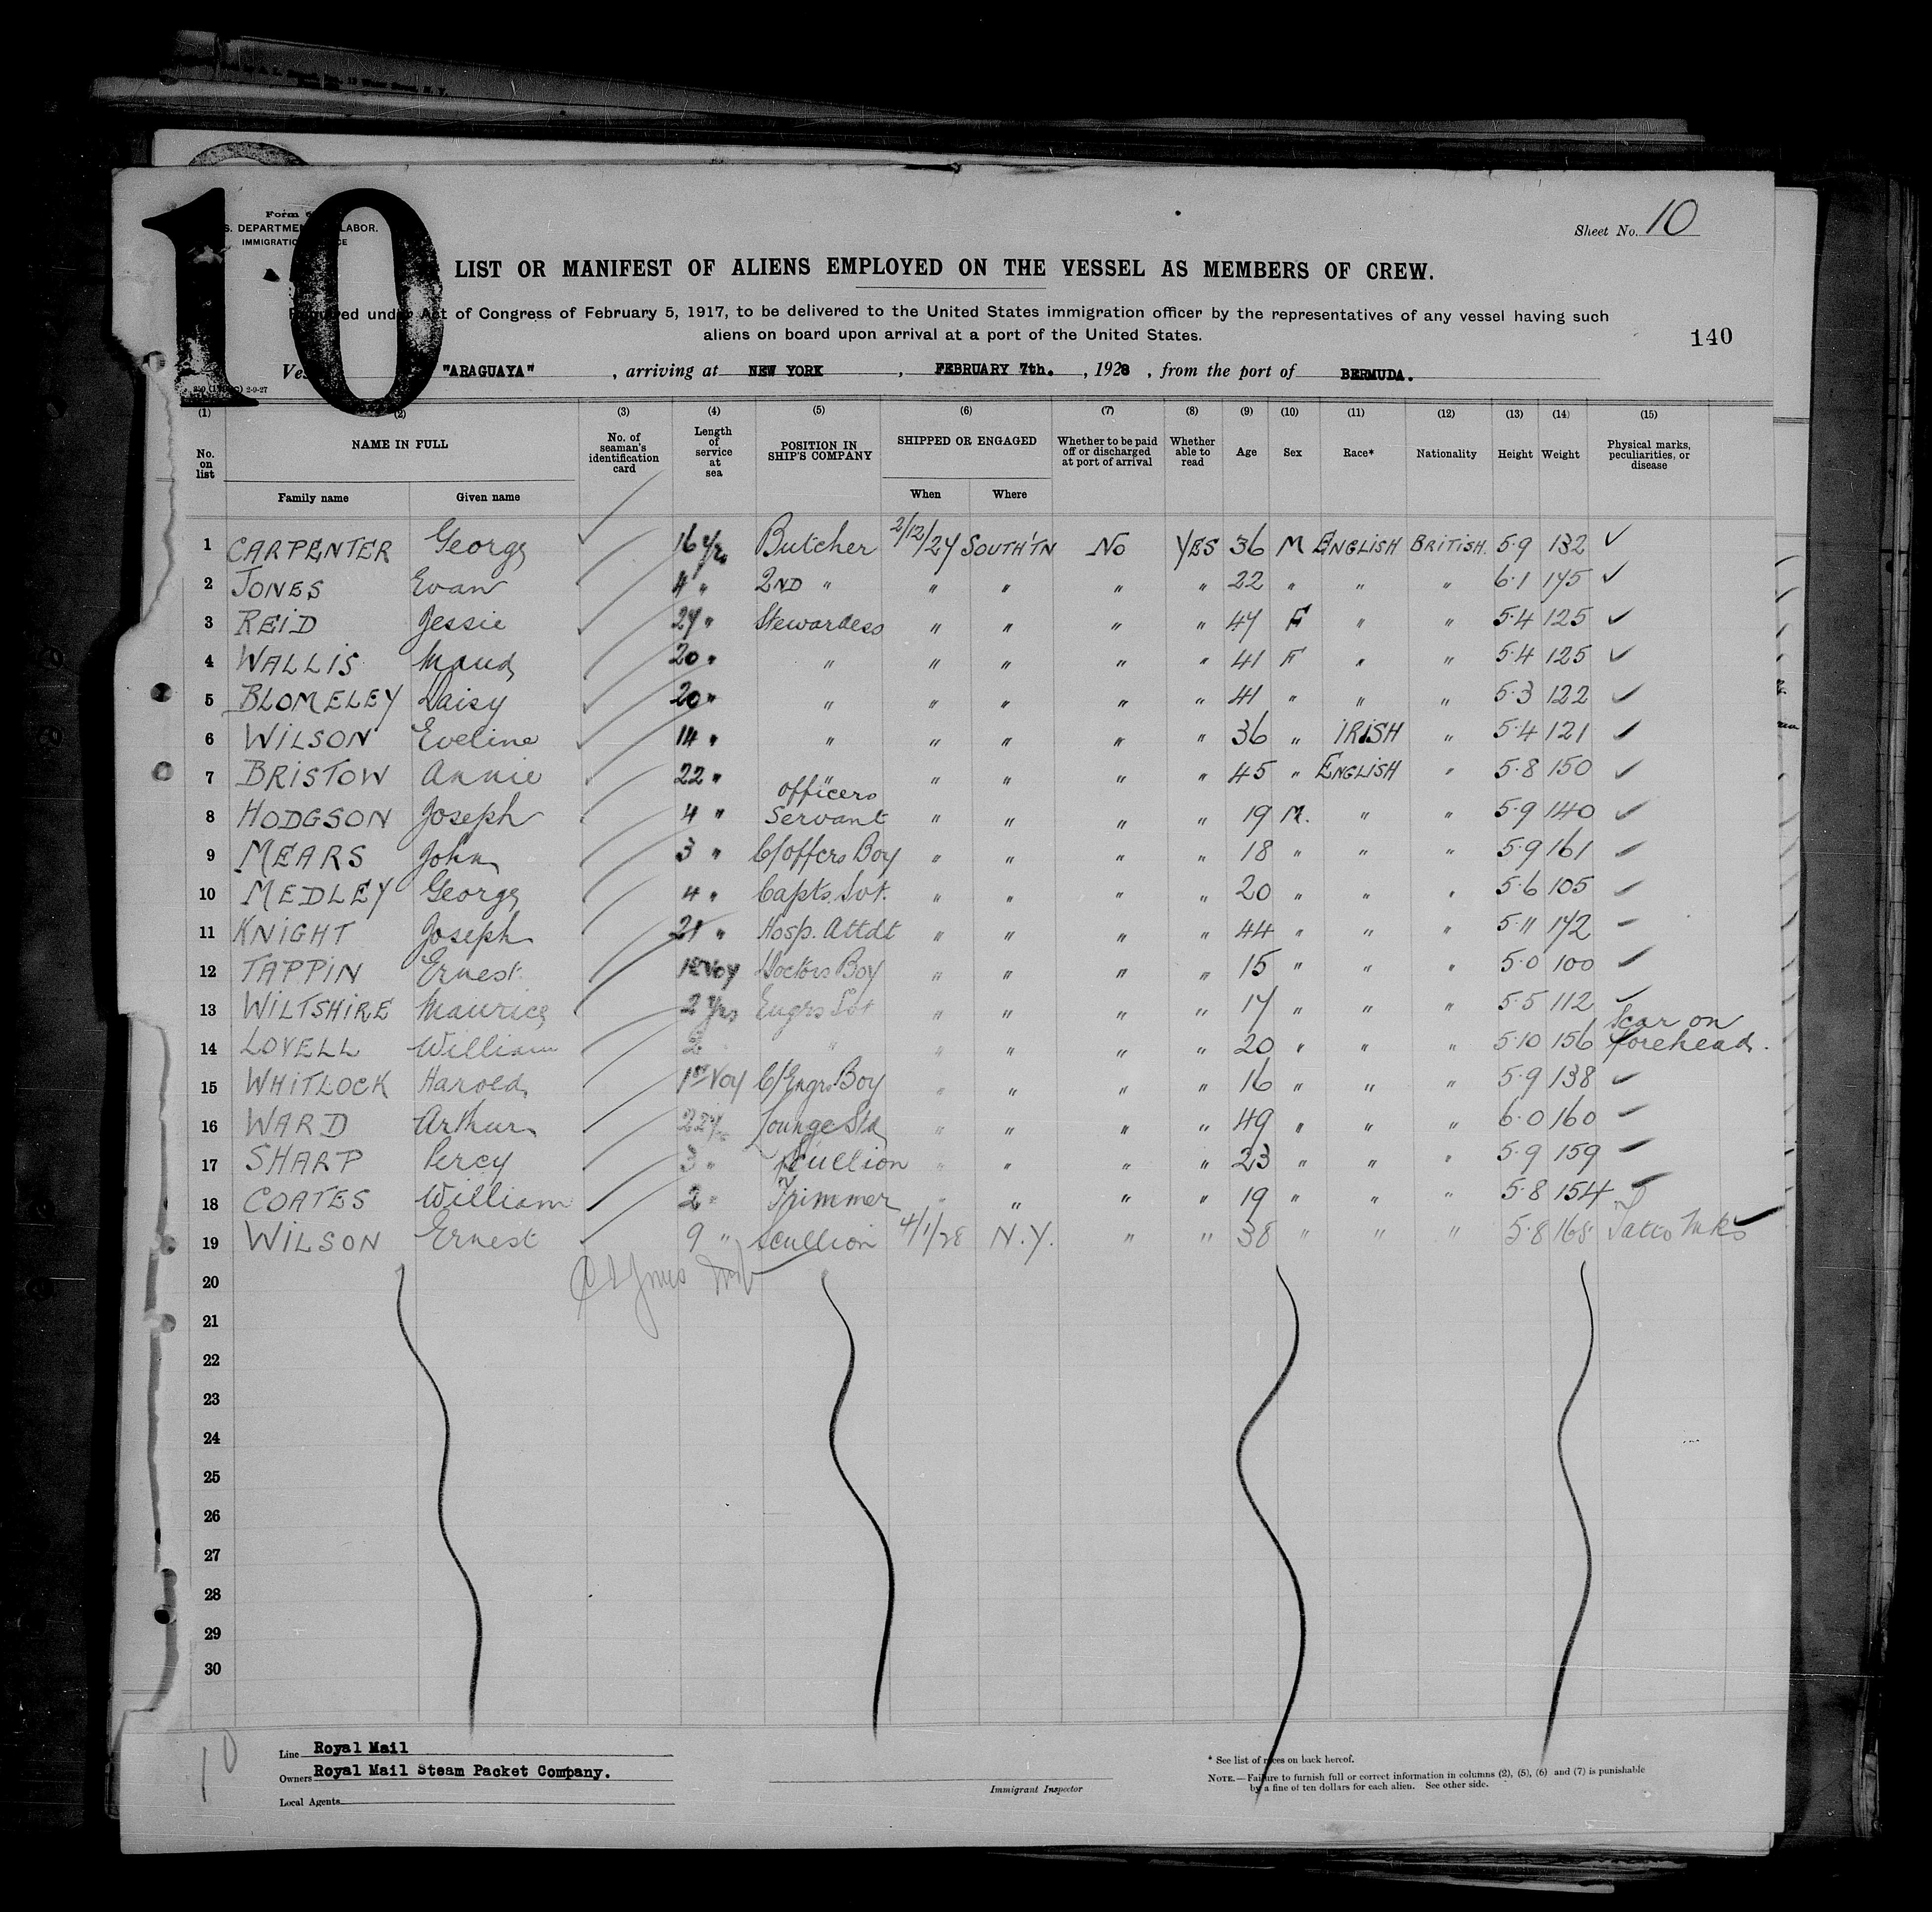 10
Sheet No. 10
S. DEPARTMENT LABOR.
LIST OR MANIFEST OF ALIENS EMPLOYED ON THE VESSEL AS MEMBERS OF CREW.
under Act of Congress of February 5, 1917, to be delivered to the United States immigration officer by the representatives of any vessel having such
aliens on board upon arrival at a port of the United States.
140
"ARAGUAYA" , arriving at NEW YORK , FEBRUARY 7th. , 1928 , from the port of BERMUDA.
(1) (2) (3) (4) (5) (6) (7) (8) (9) (10) (11) (12) (13) (14) (15)
No. on list NAME IN FULL No. of seaman's identification card Length of service at sea POSITION IN SHIP'S COMPANY SHIPPED OR ENGAGED Whether to be paid off or discharged at port of arrival Whether able to read Age Sex Race* Nationality Height Weight Physical marks, peculiarities, or disease
Family name Given name When Where
1 CARPENTER George 16 yrs Butcher 2/12/27 SOUTH'TN No YES 36 M ENGLISH BRITISH. 5.9 132 ✓
2 JONES Evan 4 " 2ND " " " " " 22 " " " 6.1 175 ✓
3 REID Jessie 27 " Stewardess " " " " 47 F " " 5.4 125 ✓
4 WALLIS Maud 20 " " " " " " 41 F " " 5.4 125 ✓
5 BLOMELEY Daisy 20 " " " " " " 41 " " " 5.3 122 ✓
6 WILSON Eveline 14 " " " " " " 36 " IRISH " 5.4 121 ✓
7 BRISTOW Annie 22 " " " " " " 45 " ENGLISH " 5.8 150 ✓
8 HODGSON Joseph 4 " officers Servant " " " " 19 M. " " 5.9 140 ✓
9 MEARS John 3 " C/offcrs Boy " " " " 18 " " " 5.9 161 ✓
10 MEDLEY George 4 " Capts. Svt. " " " " 20 " " " 5.6 105 ✓
11 KNIGHT Joseph 21 " Hosp. Attdt " " " " 44 " " " 5.11 172 ✓
12 TAPPIN Ernest 1st Voy Doctors Boy " " " " 15 " " " 5.0 100 ✓
13 WILTSHIRE Maurice 2 Yrs Engrs Svt " " " " 17 " " " 5.5 112 ✓
14 LOVELL William 2 " " " " " " 20 " " " 5.10 156 Scar on forehead.
15 WHITLOCK Harold 1st Voy C/Engrs Boy " " " " 16 " " " 5.9 138 ✓
16 WARD Arthur 22 Yrs Lounge Std " " " " 49 " " " 6.0 160 ✓
17 SHARP Percy 3 " Scullion " " " " 23 " " " 5.9 159 ✓
18 COATES William 2 " Trimmer " " " " 19 " " " 5.8 154 ✓
19 WILSON Ernest 9 " Scullion 4/1/28 N.Y. " " 38 " " " 5.8 168 Tatto Mks ✓
20
21
22
23
24
25
26
27
28
29
30
10
Line Royal Mail
Owners Royal Mail Steam Packet Company.
Local Agents
Immigrant Inspector
* See list of races on back hereof.
NOTE.—Failure to furnish full or correct information in columns (2), (5), (6) and (7) is punishable
by a fine of ten dollars for each alien. See other side.